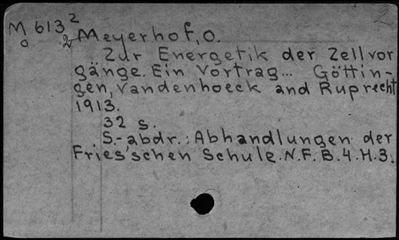 M 613 2
o 2 Meyerhof, O.
Zur Energetik der Zellvor
gänge. Ein Vortrag... Götting-
gen, Vandenhoeck and Ruprecht
1913.
32 s.
S.-abdr.: Abhandlungen der
Fries'schen Schule. N.F. B.4. H.3.